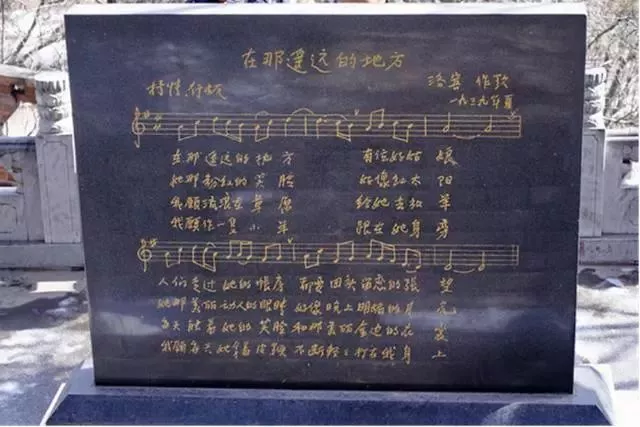 在那遥远的地方
抒情行板 洛宾 作歌
一九三九年夏
在那遥远的地方 有位好姑娘
她那粉红的笑脸 好像红太阳
我愿流浪在草原 给她去牧羊
我愿作一只小羊 跟在她身旁
人们走过她的帐房 都要回头留恋的张望
她那美丽动人的眼睛 好像晚上明媚的月亮
每天能看她的笑脸 和那美丽金边的衣裳
我愿每天她拿着皮鞭 不断轻轻打在我身上